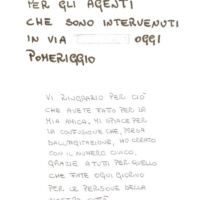 PER GLI AGENTI
CHE SONO INTERVENUTI
IN VIA OGGI
POMERIGGIO
VI RINGRAZIO PER CIÒ
CHE AVETE FATTO PER LA
MIA AMICA. MI SPIACE PER
LA CONFUSIONE CHE, PRESA
DALL'AGITAZIONE, HO CREATO
CON IL NUMERO CIVICO.
GRAZIE A TUTTI PER QUELLO
CHE FATE OGNI GIORNO
PER LE PERSONE DELLA
NOSTRA CITTÀ